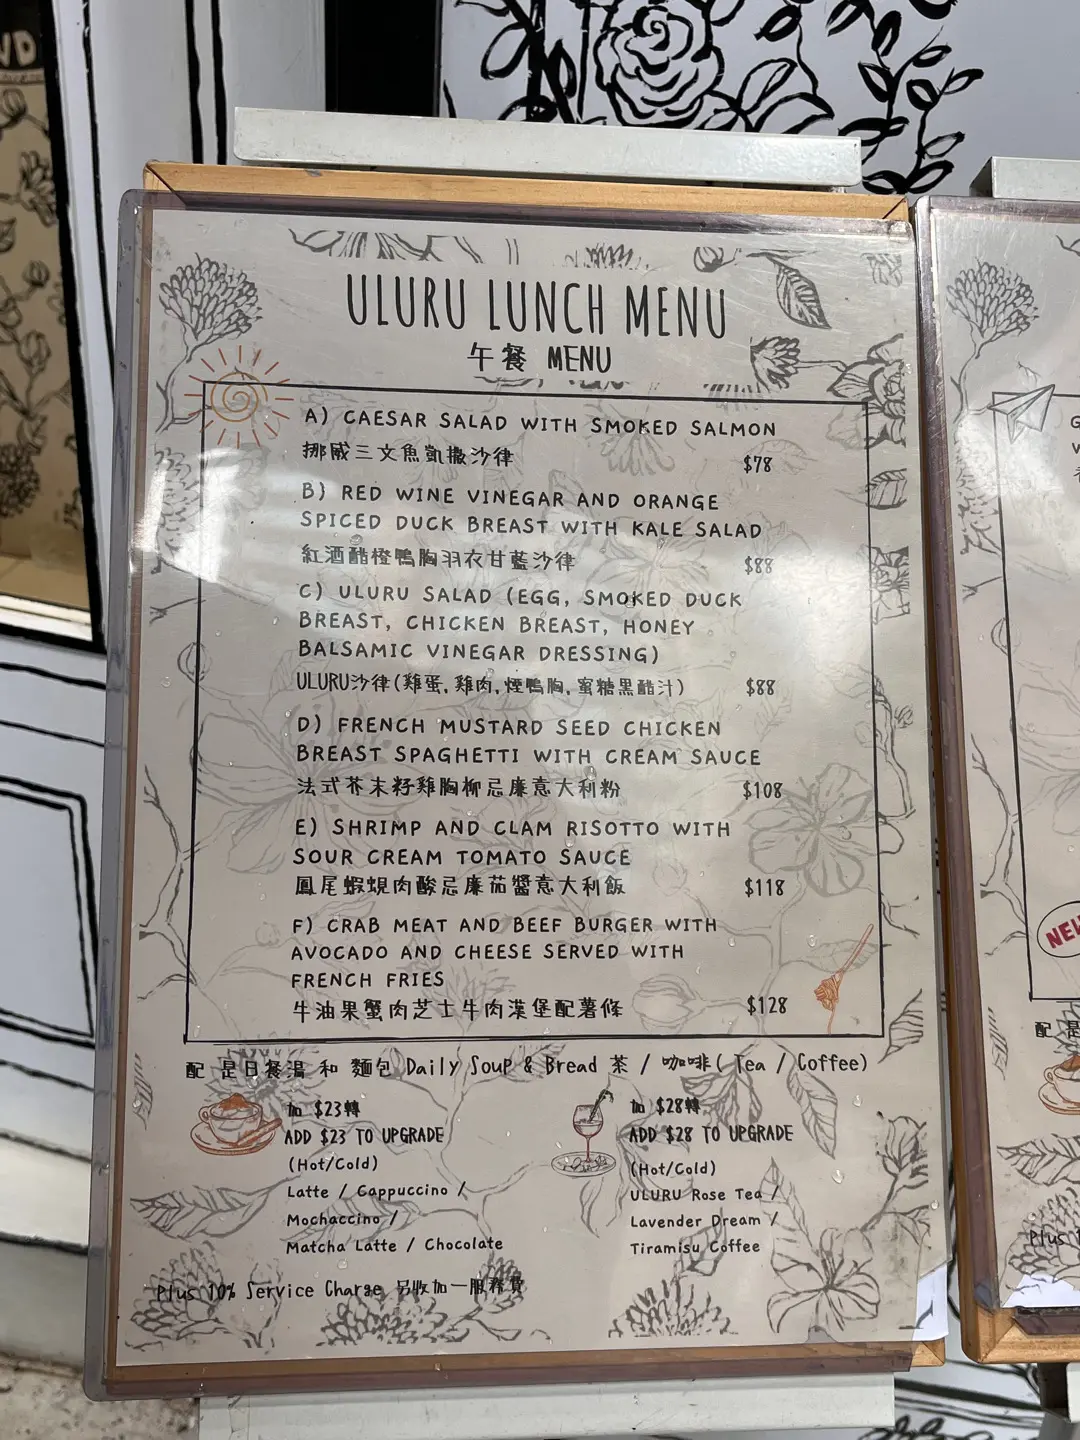 ULURU LUNCH MENU
午餐 MENU
A) CAESAR SALAD WITH SMOKED SALMON
挪威三文魚凱撒沙律 $78
B) RED WINE VINEGAR AND ORANGE
SPICED DUCK BREAST WITH KALE SALAD
紅酒醋橙鴨胸羽衣甘藍沙律 $88
C) ULURU SALAD (EGG, SMOKED DUCK
BREAST, CHICKEN BREAST, HONEY
BALSAMIC VINEGAR DRESSING)
ULURU沙律(雞蛋,雞肉,煙鴨胸,蜜糖黑醋汁) $88
D) FRENCH MUSTARD SEED CHICKEN
BREAST SPAGHETTI WITH CREAM SAUCE
法式芥末籽雞胸柳忌廉意大利粉 $108
E) SHRIMP AND CLAM RISOTTO WITH
SOUR CREAM TOMATO SAUCE
鳳尾蝦蜆肉酸忌廉茄醬意大利飯 $118
F) CRAB MEAT AND BEEF BURGER WITH
AVOCADO AND CHEESE SERVED WITH
FRENCH FRIES
牛油果蟹肉芝士牛肉漢堡配薯條 $128
配 是日餐湯 和 麵包 Daily Soup & Bread 茶 / 咖啡( Tea / Coffee)
加 $23轉
ADD $23 TO UPGRADE
(Hot/Cold)
Latte / Cappuccino /
Mochaccino /
Matcha Latte / Chocolate
加 $28轉
ADD $28 TO UPGRADE
(Hot/Cold)
ULURU Rose Tea /
Lavender Dream /
Tiramisu Coffee
Plus 10% Service Charge 另收加一服務費
NEW
配 是
Plus